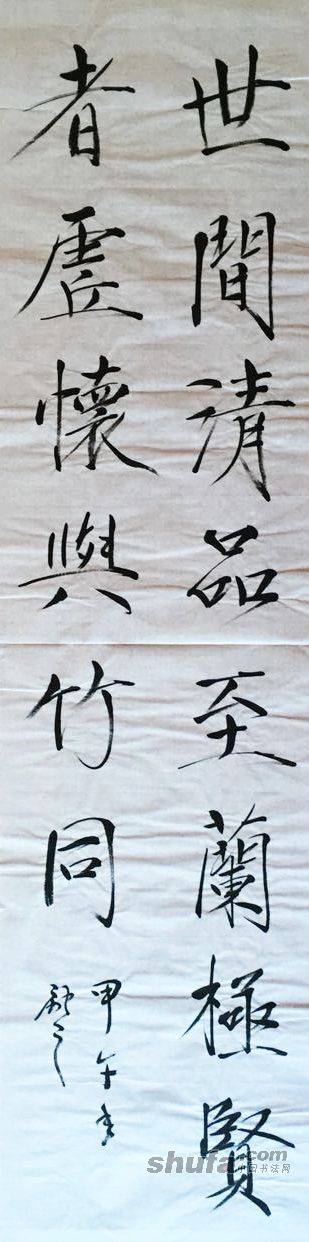 世間清品至蘭極賢
者虛懷與竹同
甲午年
shufa.com
中国书法网